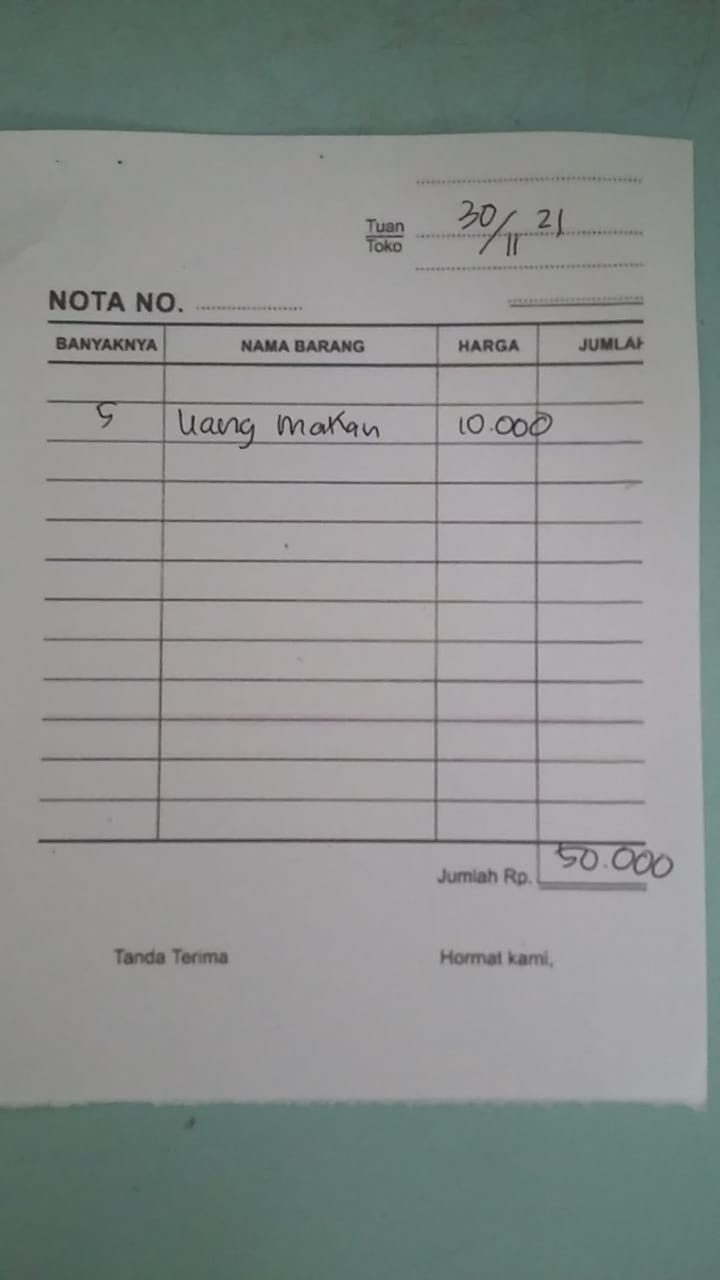 30/11 21
Tuan
Toko
NOTA NO.
BANYAKNYA NAMA BARANG HARGA JUMLAH
5 Uang makan 10.000
Jumlah Rp. 50.000
Tanda Terima Hormat kami,